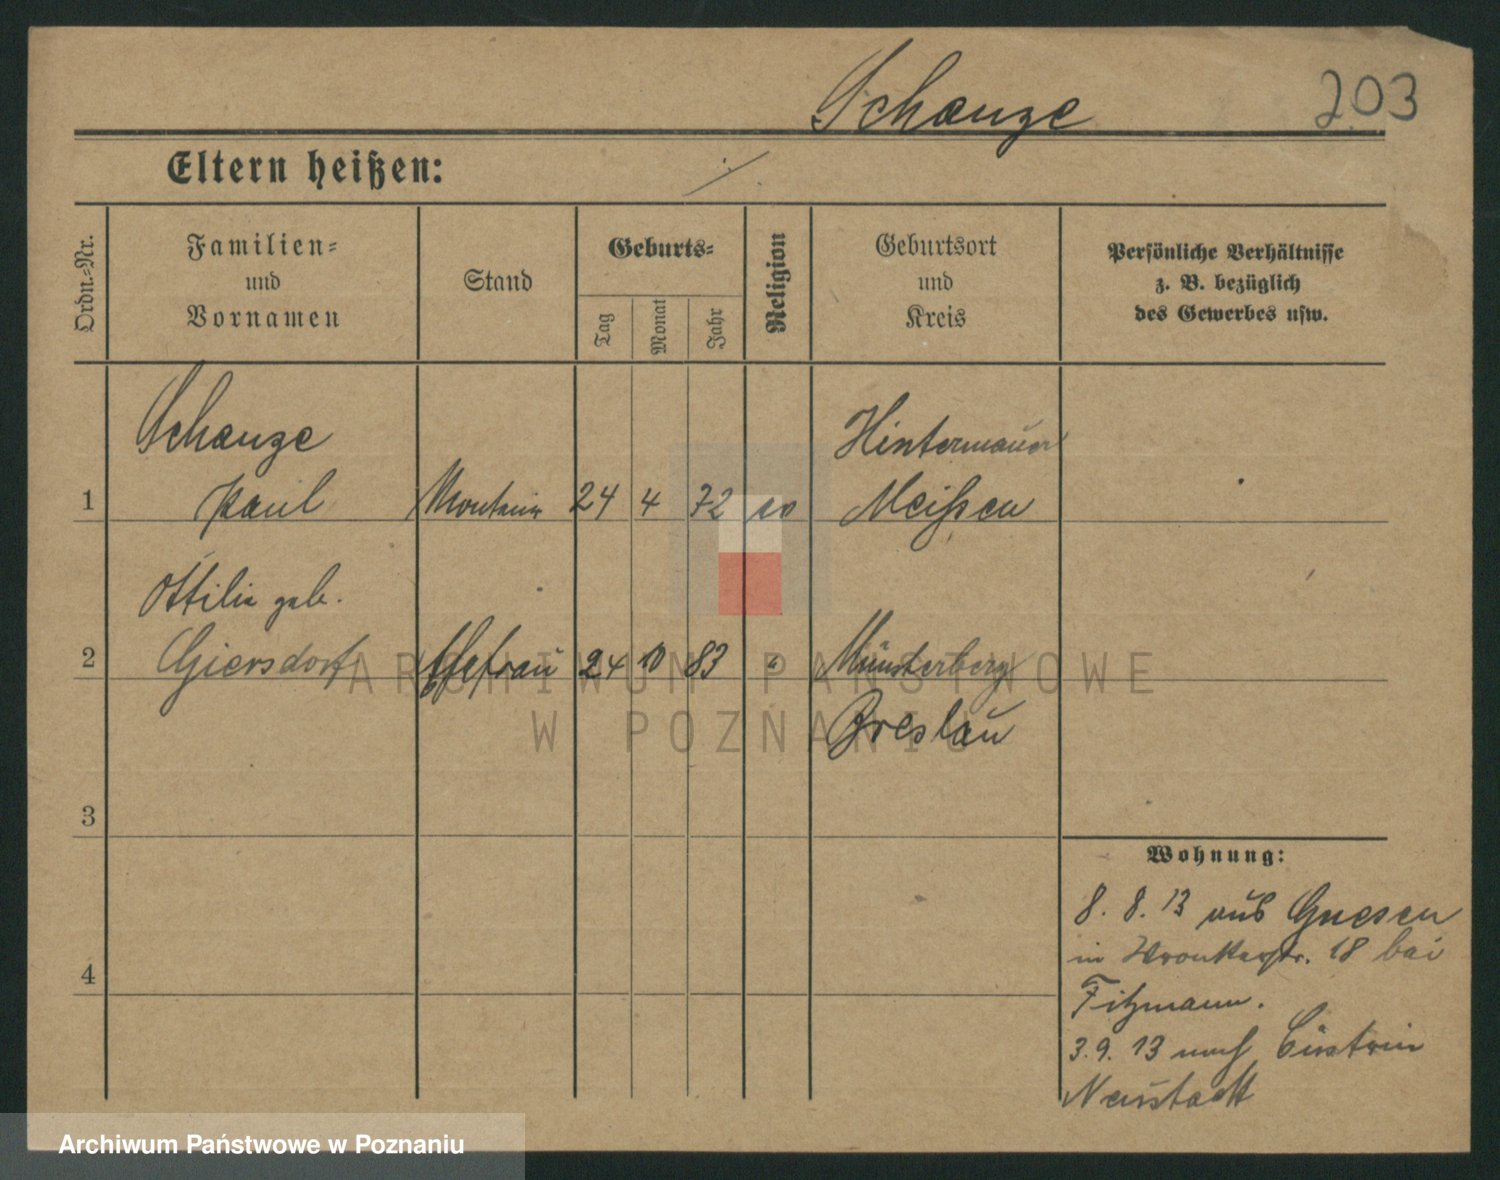 Schanze
203
Eltern heißen: ./.
Ordn.-Nr.
Familien-
und
Vornamen
Stand
Geburts-
Tag
Monat
Jahr
Religion
Geburtsort
und
Kreis
Persönliche Verhältnisse
z. B. bezüglich
des Gewerbes usw.
Schanze
Hintermauer
1 Paul 24 4 72 ev Meißen
Ottilie geb.
2 Giersdorf Ehefrau 24 10 83 " Münsterberg
Breslau
3
4
Wohnung:
8. 8. 13 aus Gnesen
in Wronkerstr. 18 bei
Fitzmann.
3. 9. 13 nach Cüstrin
Neustadt
ARCHIWUM PAŃSTWOWE
W POZNANIU
Archiwum Państwowe w Poznaniu